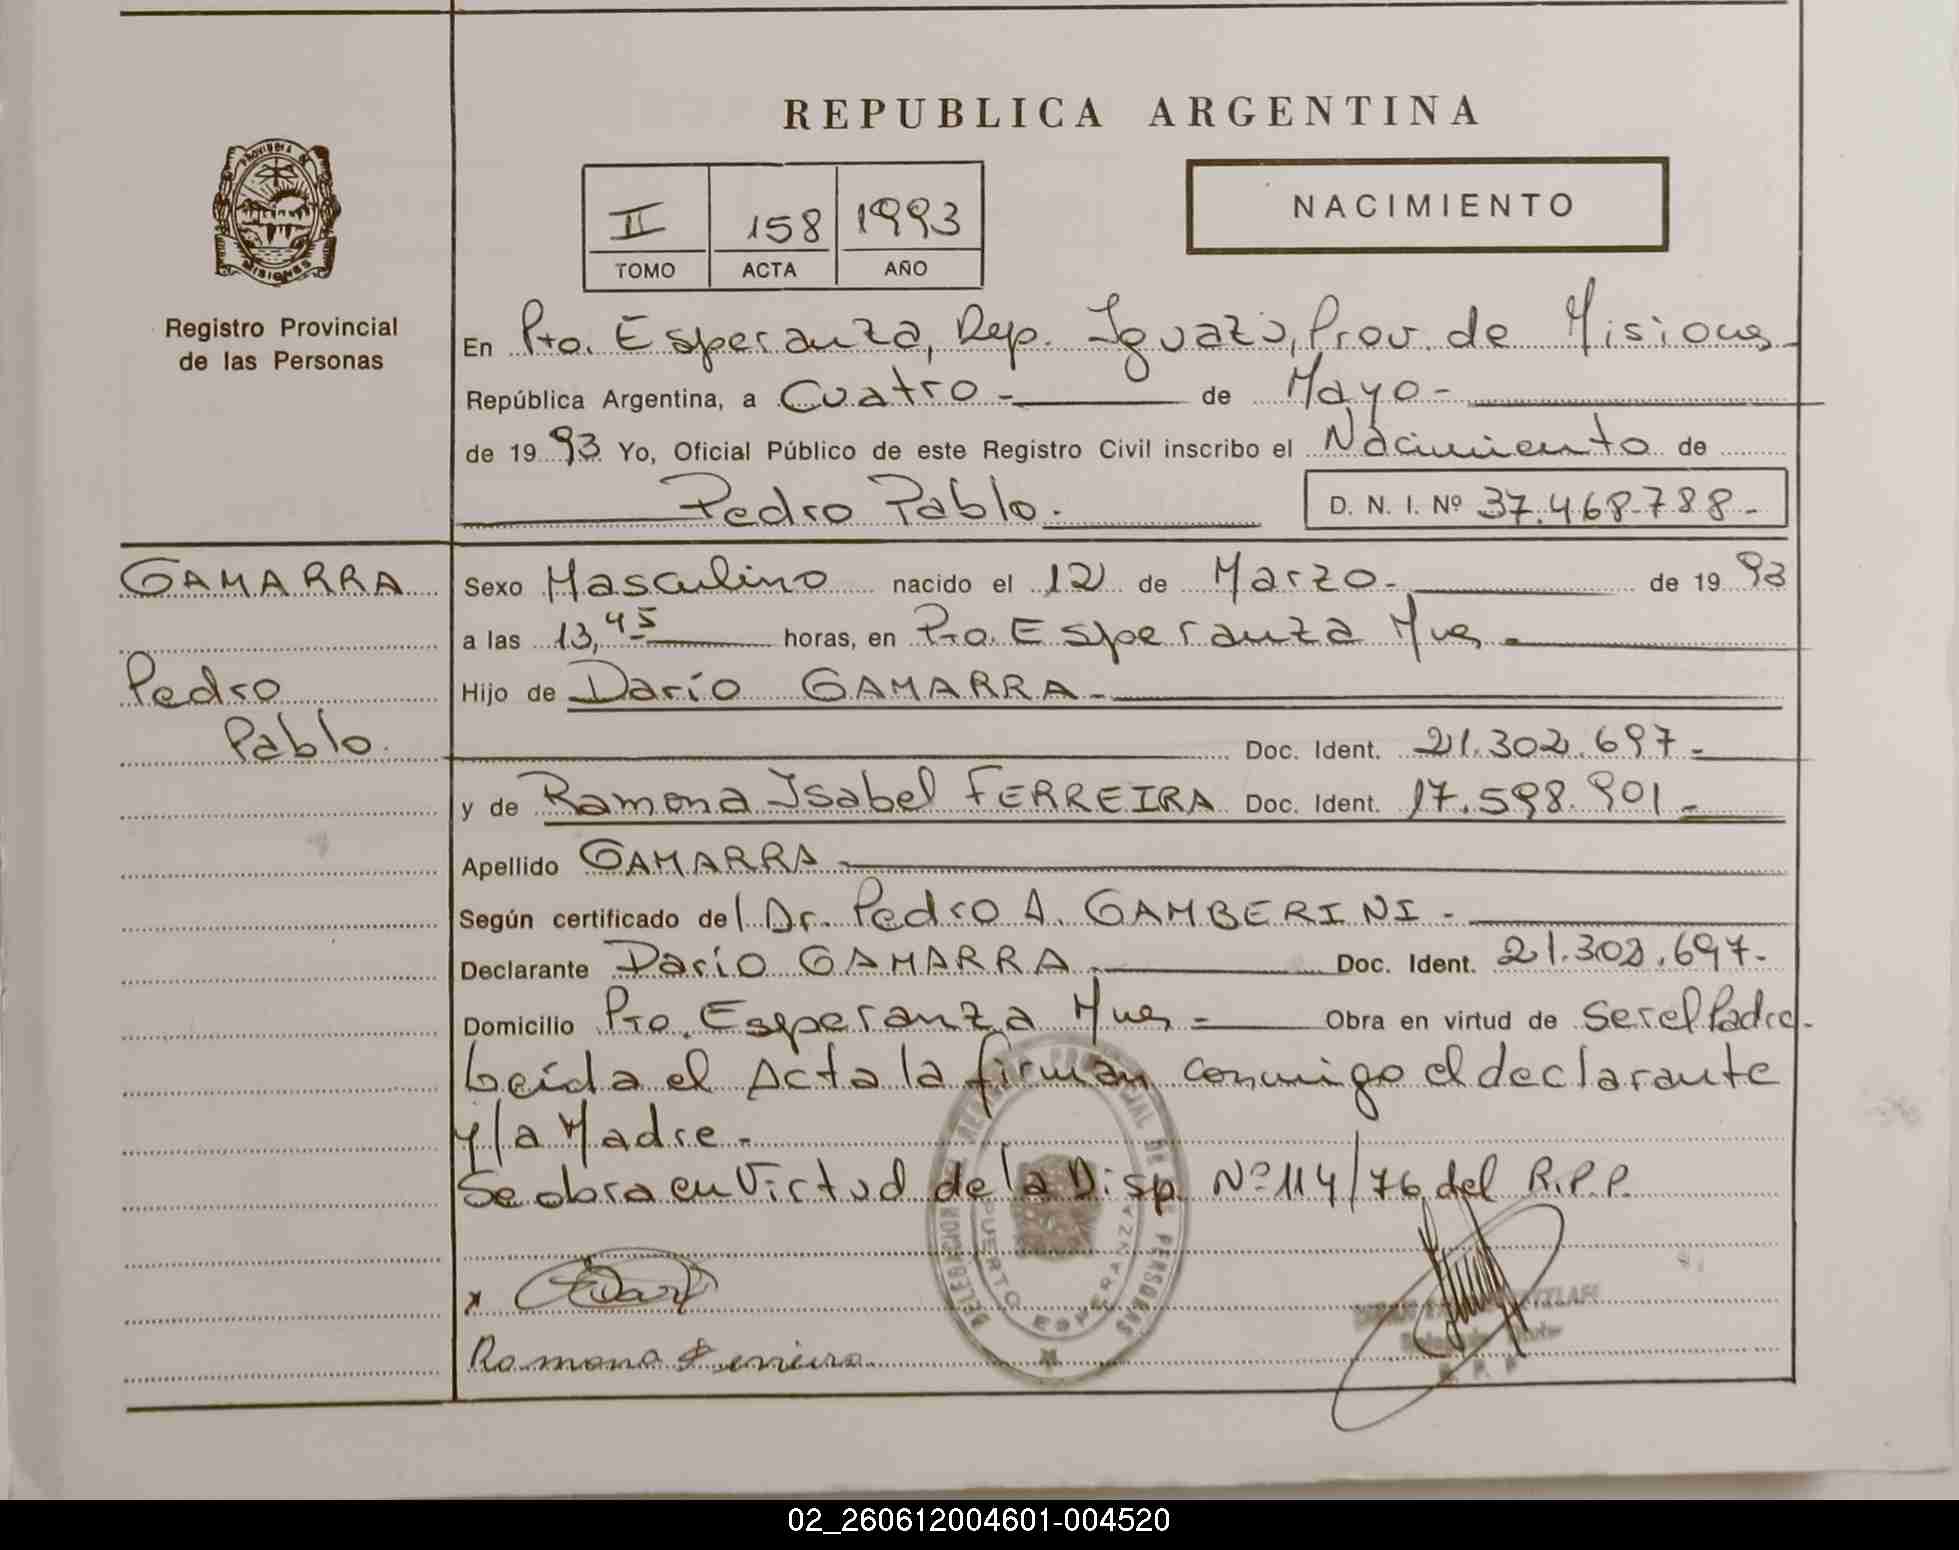 REPUBLICA ARGENTINA
PROVINCIA DE
MISIONES
Registro Provincial
de las Personas
II 158 1993
TOMO ACTA AÑO
NACIMIENTO
En Pto. Esperanza, Dep. Iguazú, Prov. de Misiones
República Argentina, a Cuatro - de Mayo -
de 1993 Yo, Oficial Público de este Registro Civil inscribo el Nacimiento de
Pedro Pablo. D. N. I. Nº 37.468.788-
GAMARRA
Pedro
Pablo.
Sexo Masculino nacido el 12 de Marzo- de 1993
a las 13,45 horas, en Pto. Esperanza Mnes
Hijo de Darío GAMARRA-
Doc. Ident. 21.302.697-
y de Ramona Isabel FERREIRA Doc. Ident. 17.598.901-
Apellido GAMARRA-
Según certificado del Dr. Pedro A. GAMBERINI-
Declarante Darío GAMARRA- Doc. Ident. 21.302.697-
Domicilio Pto. Esperanza Mnes - Obra en virtud de Ser el Padre-
Leída el Acta la firman conmigo el declarante
y la Madre-
Se obra en Virtud de la Disp. Nº 114/76 del R.P.P.
DELEGACION DEL REGISTRO PROVINCIAL DE PERSONAS
PUERTO ESPERANZA
x
Ramona Ferreira
R. P. P.
02_260612004601-004520